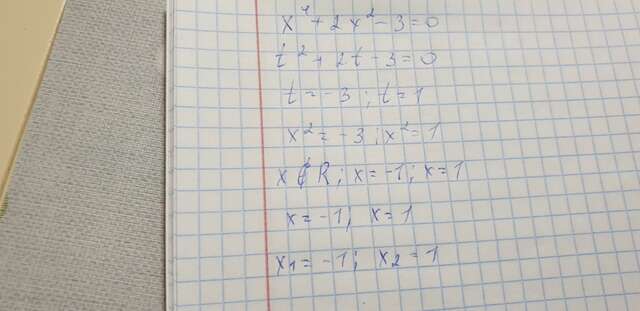 x⁴ + 2x² - 3 = 0
t² + 2t - 3 = 0
t = -3 ; t = 1
x² = -3 ; x² = 1
x ∉ R ; x = -1 ; x = 1
x = -1, x = 1
x₁ = -1 ; x₂ = 1